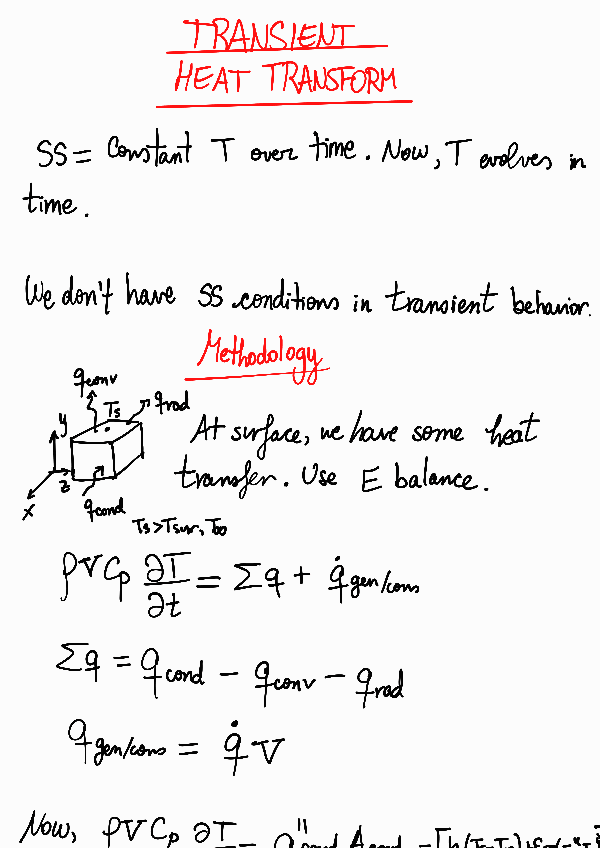 TRANSIENT
HEAT TRANSFORM
SS = Constant T over time. Now, T evolves in
time.
We don't have SS conditions in transient behavior.
Methodology
qconv
Ts
qrad
y
z
x
qcond
Ts > Tsur, T∞
At surface, we have some heat
transfer. Use E balance.
ρVCp ∂T/∂t = Σq + q̇gen/cons
Σq = qcond - qconv - qrad
qgen/cons = q̇V
Now, ρVCp ∂T